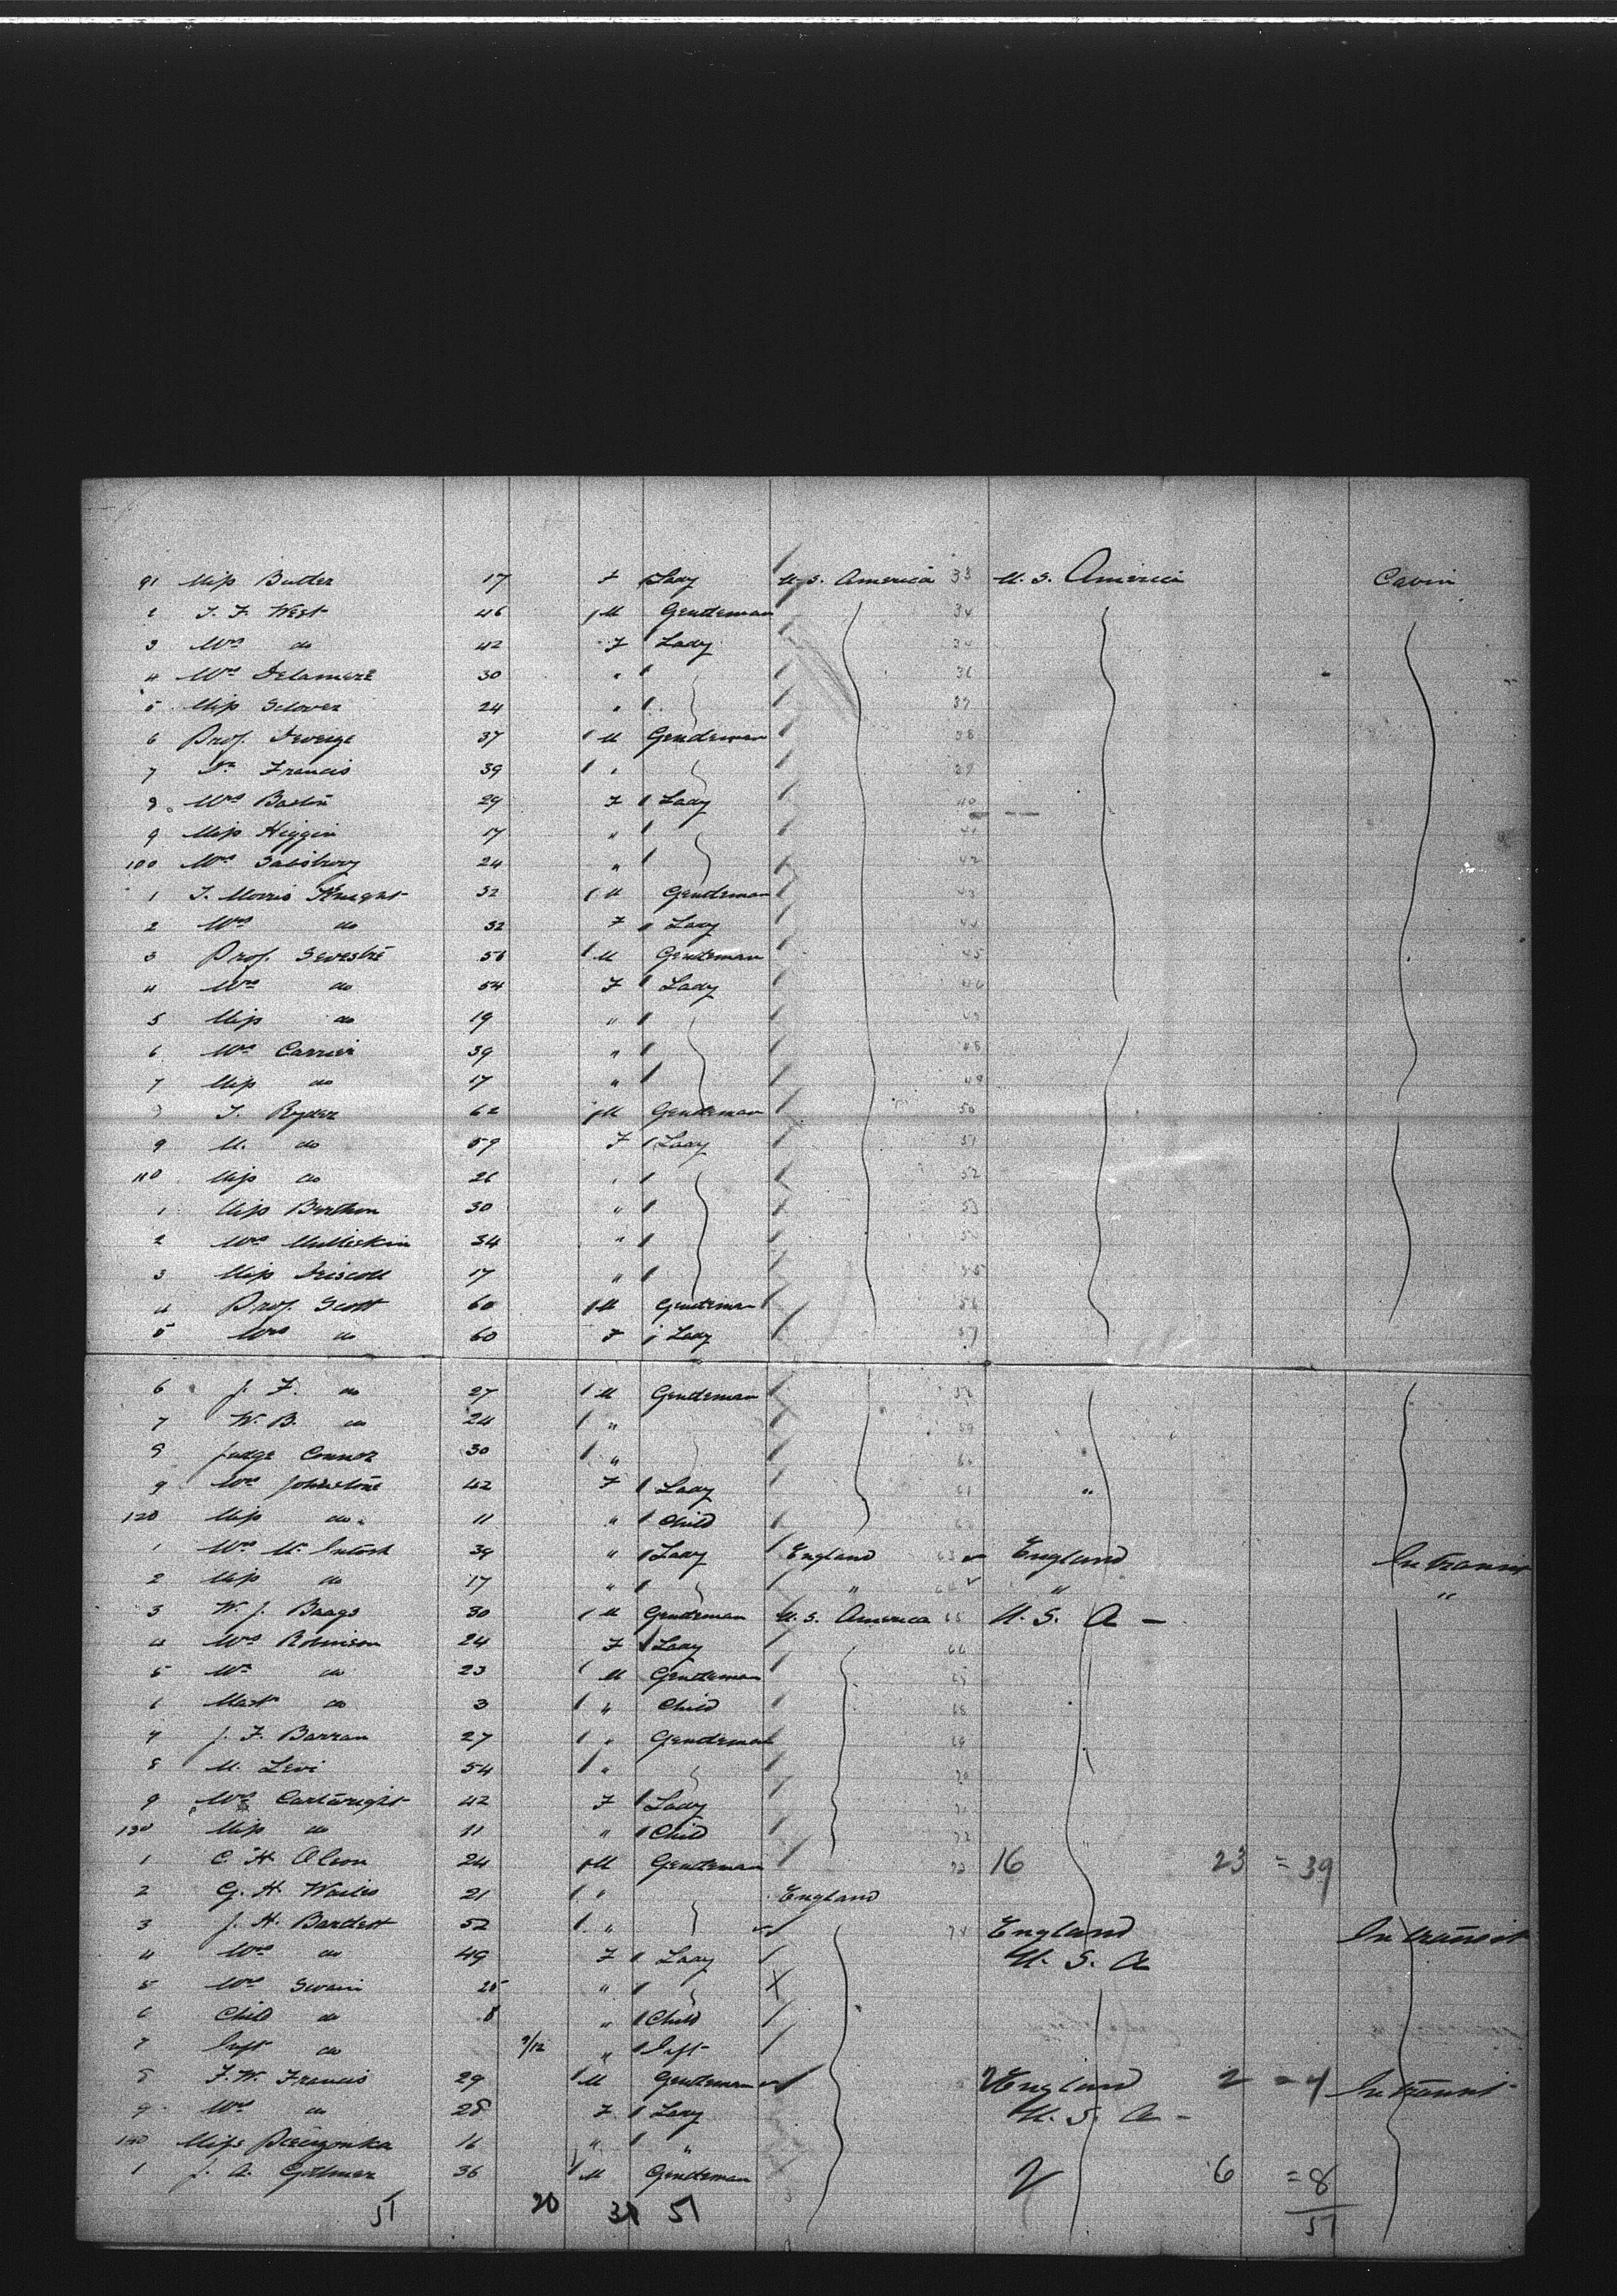 91 Miss Butler 17 F Lady U.S. America 33 U.S. America Cabin
2 T. F. West 46 M Gentleman 34
3 Mrs do 42 F Lady
4 Mrs Delamere 30 " 36
5 Miss Glover 24 " 37
6 Prof. 37 M Gentleman 38
7 Dr Francis 39 " 39
8 Mrs Bastin 29 F Lady 40
9 Miss Higgin 17 " 41
100 Mrs Salisbury 24 " 42
1 T. Morris Knight 32 M Gentleman 43
2 Mrs do 32 F Lady 44
3 Prof. 56 M Gentleman 45
4 Mrs do 54 F Lady 46
5 Miss do 19 "
6 Mrs Carrier 39 " 48
7 Miss do 17 " 49
T. Ryder 62 M Gentleman 50
9 M. do 59 F Lady 51
110 Miss do 26 " 52
1 Miss 30 " 53
2 Mrs Milliskin 34 "
3 Miss Driscoll 17 " 55
4 Prof. Scott 60 M Gentleman 56
5 Mrs do 60 F Lady 57
6 J. F. do 27 M Gentleman
7 W. B. do 24 " 59
8 Judge Connor 30 "
9 Mrs Johnstone 42 F Lady 61 "
120 Miss do 11 " Child
1 Mrs McIntosh 39 " Lady England 63 England In transit
2 Miss do 17 " " 64 " "
3 W. J. Baags 30 M Gentleman U.S. America 65 U. S. A -
4 Mrs Robinson 24 F Lady 66
5 Mr do 23 M Gentleman
6 Mast do 3 " Child 68
7 J. F. Barran 27 " Gentleman 69
8 M. Levi 54 " 70
9 Mrs Cartwright 42 F Lady 71
130 Miss do 11 " Child 72
1 C. H. Olson 24 M Gentleman 73 16 23 = 39
2 G. H. 21 " England
3 J. H. Bartlett 52 " 74 England In transit
4 Mrs do 49 F Lady U. S. A
5 Mrs Swain 25 " X
6 Child do 8 " Child
7 Inft do 9/12 " Inft
8 F. W. Francis 29 M Gentleman 2 England 2 = 4 In transit
9 Mrs do 28 F Lady U. S. A -
140 Miss 16 " "
1 J. A. Gilmer 36 M Gentleman 2 6 = 8
51 20 31 51 51